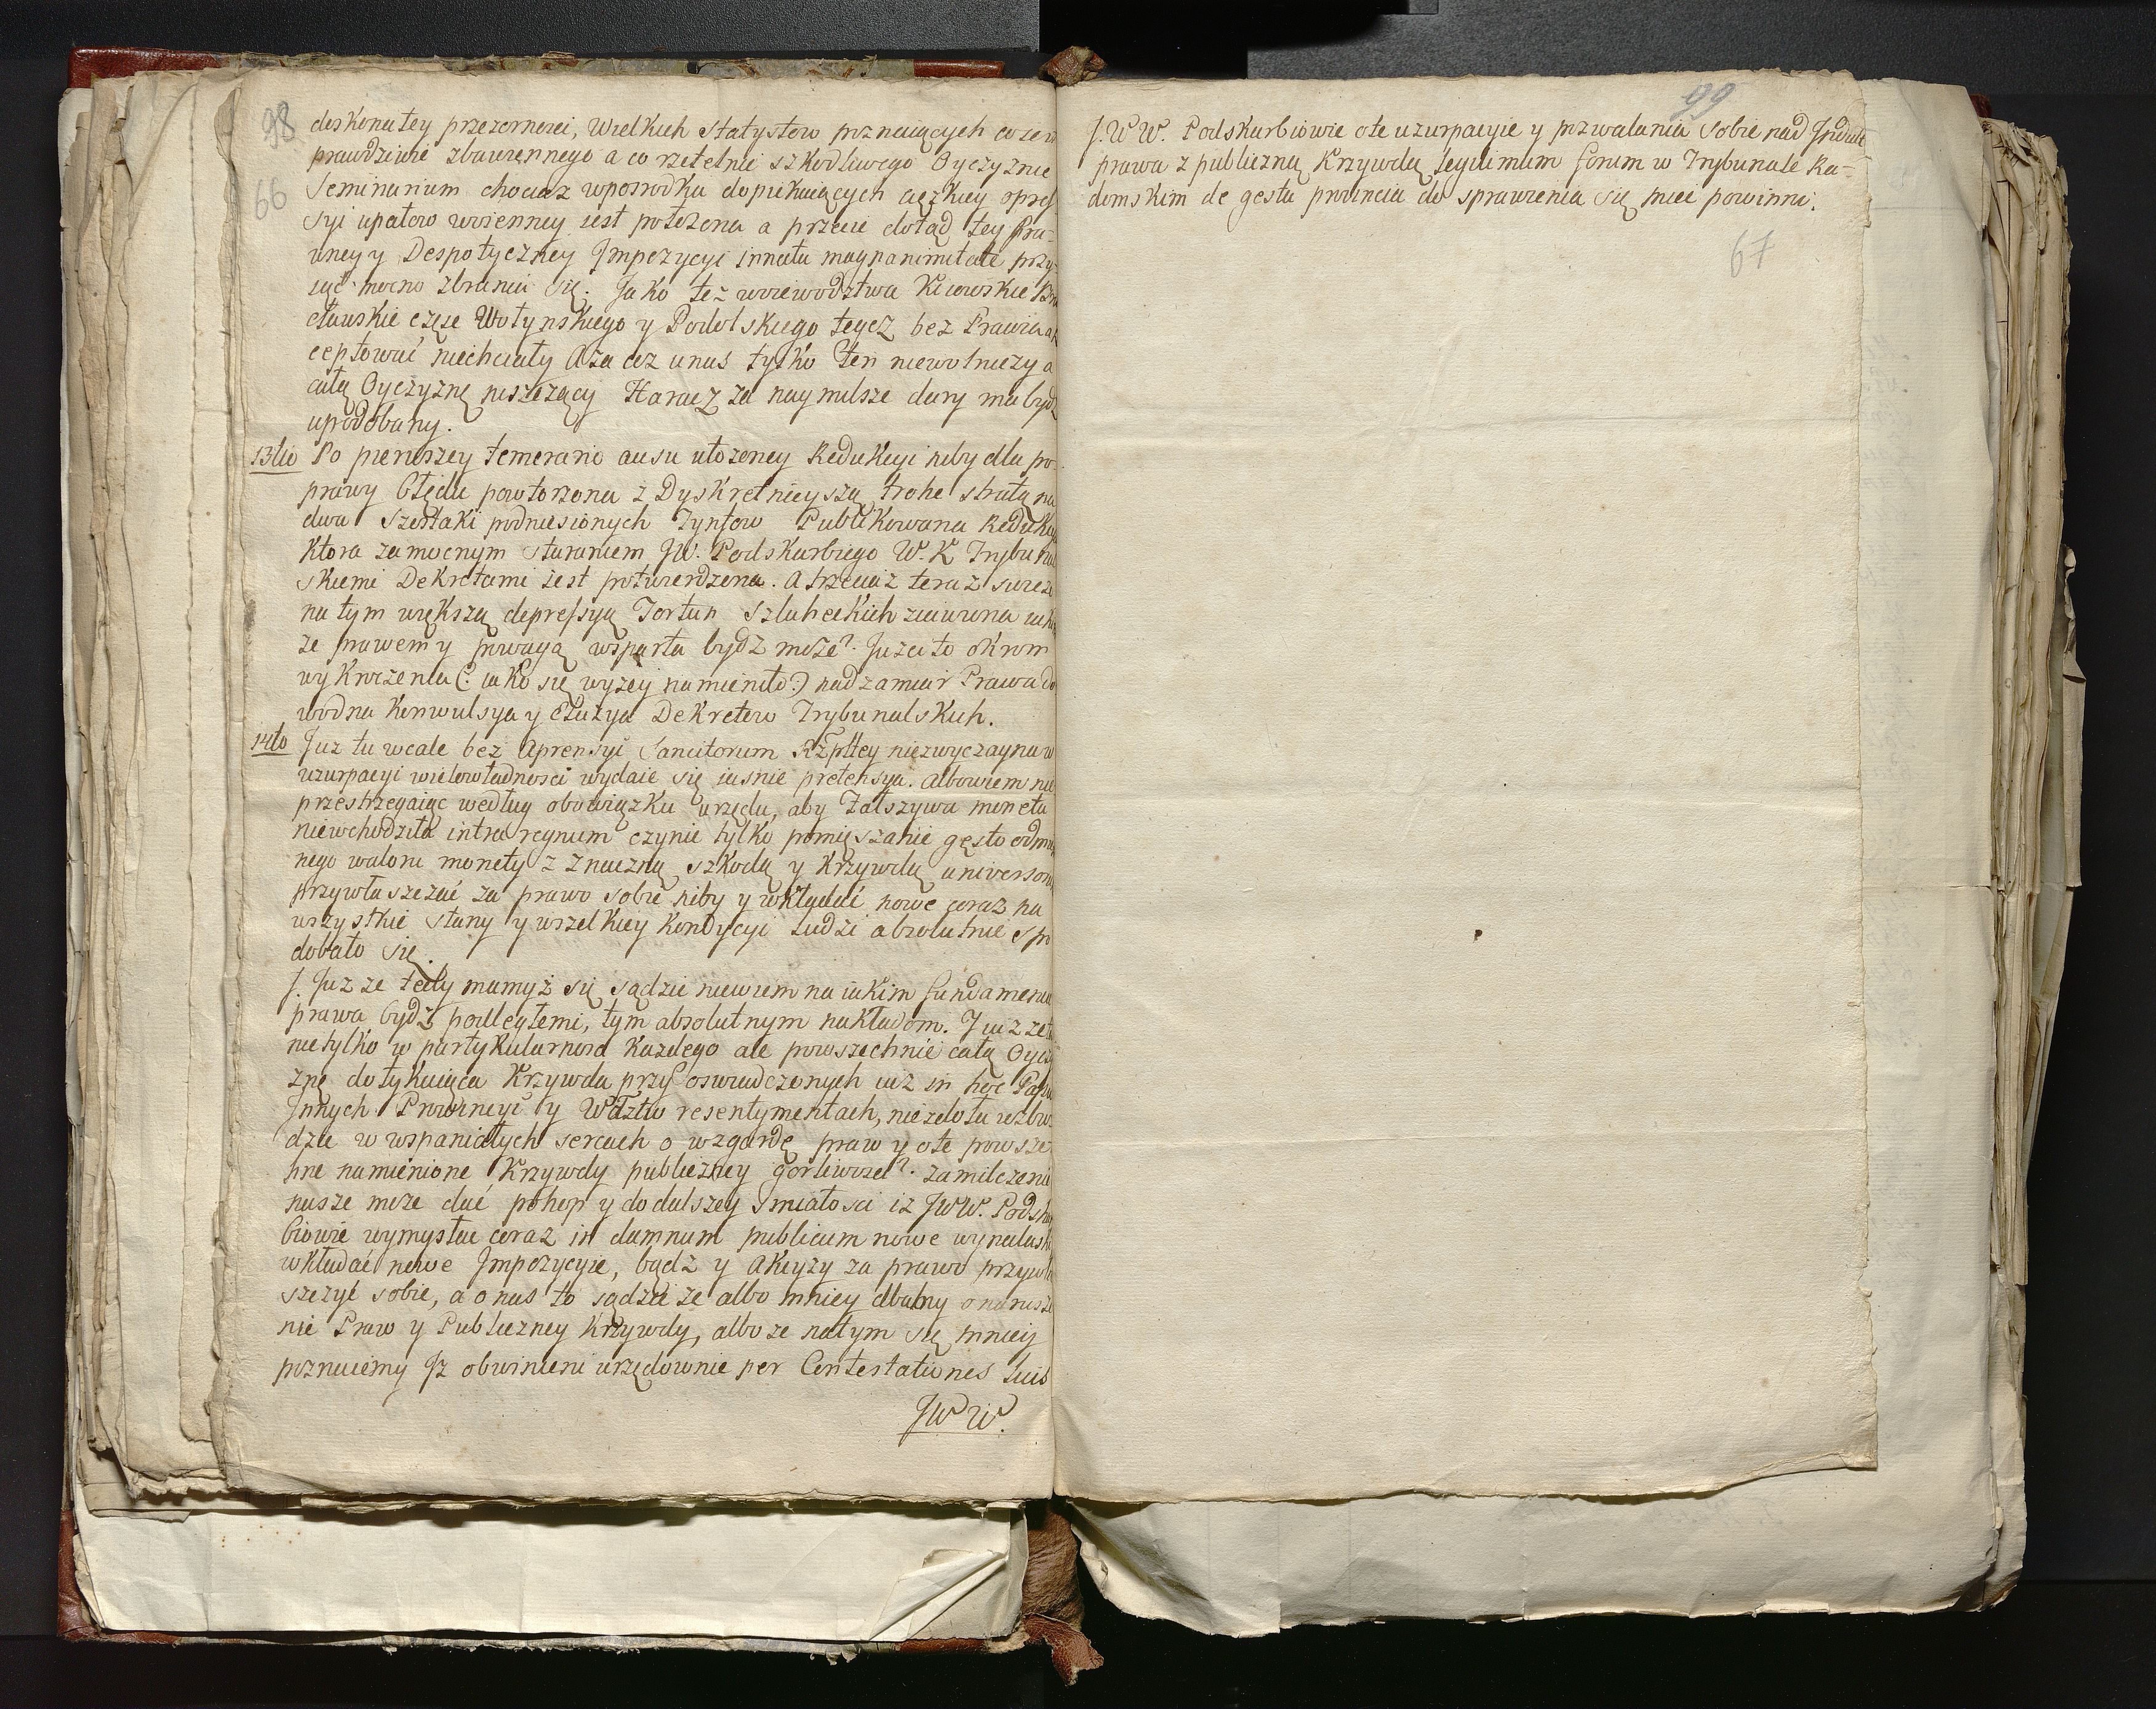 98
doskonałey przezorności, Wielkich Statystow poznaiących co iest
prawdziwie zbawiennego a co rzetelnie szkodliwego Oyczyznie
66
Seminarium chociaż wposrodku dopiekaiących cięzkiey opres
syi upałow woienney iest położona a przecie dotąd tey Pra-
wney y Despotyczney Impozycyi innata magnanimitate przy-
iąć mocno zbrania się. Jako też woiewodztwa Kiiowskie Bra
cławskie częsc Wołynskiego y Podolskiego teyez bez Prawia ak
ceptować niechciały Aza cóz u nas tylko ten niewolniczy a
całą Oyczyznę niszczący Haracz za naymilsze dary ma bydz
upodobany.
13tio Po pierwszey temerario ausu ułozoney Redukcyi niby dla po-
prawy błędu powtorzona z Dyskretnieyszą trohe stratą na
dwa Szostaki podniesionych Tynfow Publikowana Redukcya
Ktora za mocnym staraniem JW. Podskarbiego W. K Trybunal
skiemi Dekretami iest potwierdzona. A trzecia z teraz swieżo
na tym większą depressyą Fortun Szlaheckich ziawiona iako
że prawem y powagą wsparta bydz może? Jużci to okrom
wykroczenia (: iako się wyzey namieniło :) nad zamiar Prawa do
wodna Konwulsya y Eluzya Dekretow Trybunalskich.
14to Już tu wcale bez Aprensyi Sancitorum Rzpltey niezwyczayna w
uzurpacyi wielowładnosci wydaie się iasnie pretensya. Albowiem nie
przestrzegaiąc według obowiązku urzędu, aby Fałszywa moneta
niewchodziła intra regnum czynic tylko pomięszanie gęsto odmie
nego waloru monety z znaczną szkodą y Krzywdą universorum
przywłaszczać za prawo sobie niby y wkładać nowe coraz na
wszystkie stany y wszelkiey Kondycyi Ludzi absolutnie spo
dobało się.
J. Juz ze tedy mamyż się sądzic niewiem na iakim fundamencie
prawa bydz podległemi, tym absolutnym nakładom. J już ze ta
nietylko w partykularnosci Każdego ale powszechnie całą Oyczy
znę dotykaiąca Krzywda przy oswiadczonych iuz in hoc Passu
Innych Prowincyi y Wdztw resentymentach, nie zdoła wzbu-
dzic w wspaniałych sercach o wzgardę praw y o te powsze-
hne namienione Krzywdy publiczney gorliwosci? zamilczenie
nasze może dać pohop y do dalszey smiałosci iż JWW. Podskar
biowie wymyslac coraz in damnum publicum nowe wynalaski
wkładać nowe Impozycyie, bądz y Akcyzy za prawo przywła
szczyć sobie, a o nas to sądzić że albo mniey dbamy o narusze
nie Praw y Publiczney Krzywdy, albo ze natym się mniey
poznaiemy Jż obwinieni urzędownie per Contestationes suis
JWW.
99
J. W W. Podskarbiowie o te uzurpacyie y pozwalania sobie nad Indult
prawa z publiczną Krzywdą legitimum forum w Trybunale Ra-
domskim de gesta provincia do sprawienia się mieć powinni.
67